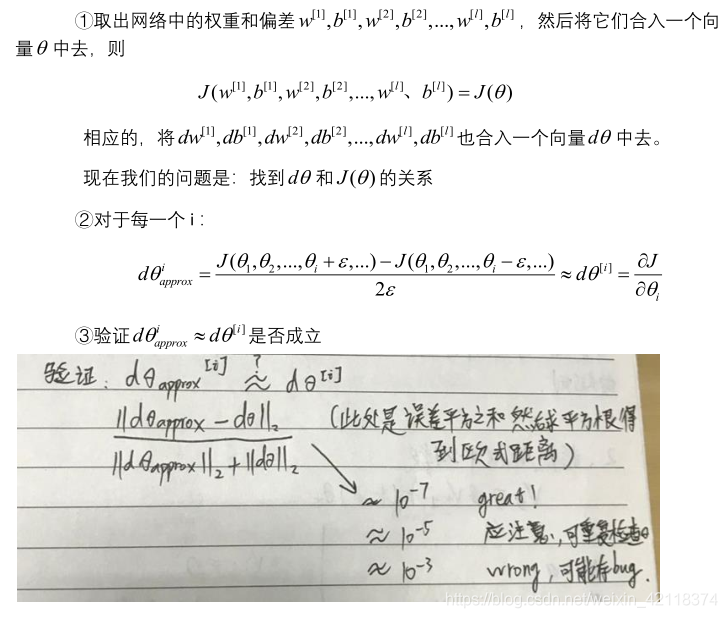 ①取出网络中的权重和偏差 w^[1],b^[1],w^[2],b^[2],...,w^[l],b^[l]，然后将它们合入一个向
量 θ 中去，则
J(w^[1],b^[1],w^[2],b^[2],...,w^[l]、b^[l]) = J(θ)
相应的，将 dw^[1],db^[1],dw^[2],db^[2],...,dw^[l],db^[l] 也合入一个向量 dθ 中去。
现在我们的问题是：找到 dθ 和 J(θ) 的关系
②对于每一个 i：
dθ^i_approx = (J(θ_1,θ_2,...,θ_i + ε,...) − J(θ_1,θ_2,...,θ_i − ε,...)) / 2ε ≈ dθ^[i] = ∂J/∂θ_i
③验证 dθ^i_approx ≈ dθ^[i] 是否成立
验证：dθ_approx^[i] ≈? dθ^[i]
||dθ_approx − dθ||_2 / (||dθ_approx||_2 + ||dθ||_2) （此处是误差平方之和然后求平方根得
到欧式距离）
≈ 10^-7 great!
≈ 10^-5 应注意，可重复检查θ
≈ 10^-3 wrong，可能存bug.
https://blog.csdn.net/weixin_42118374